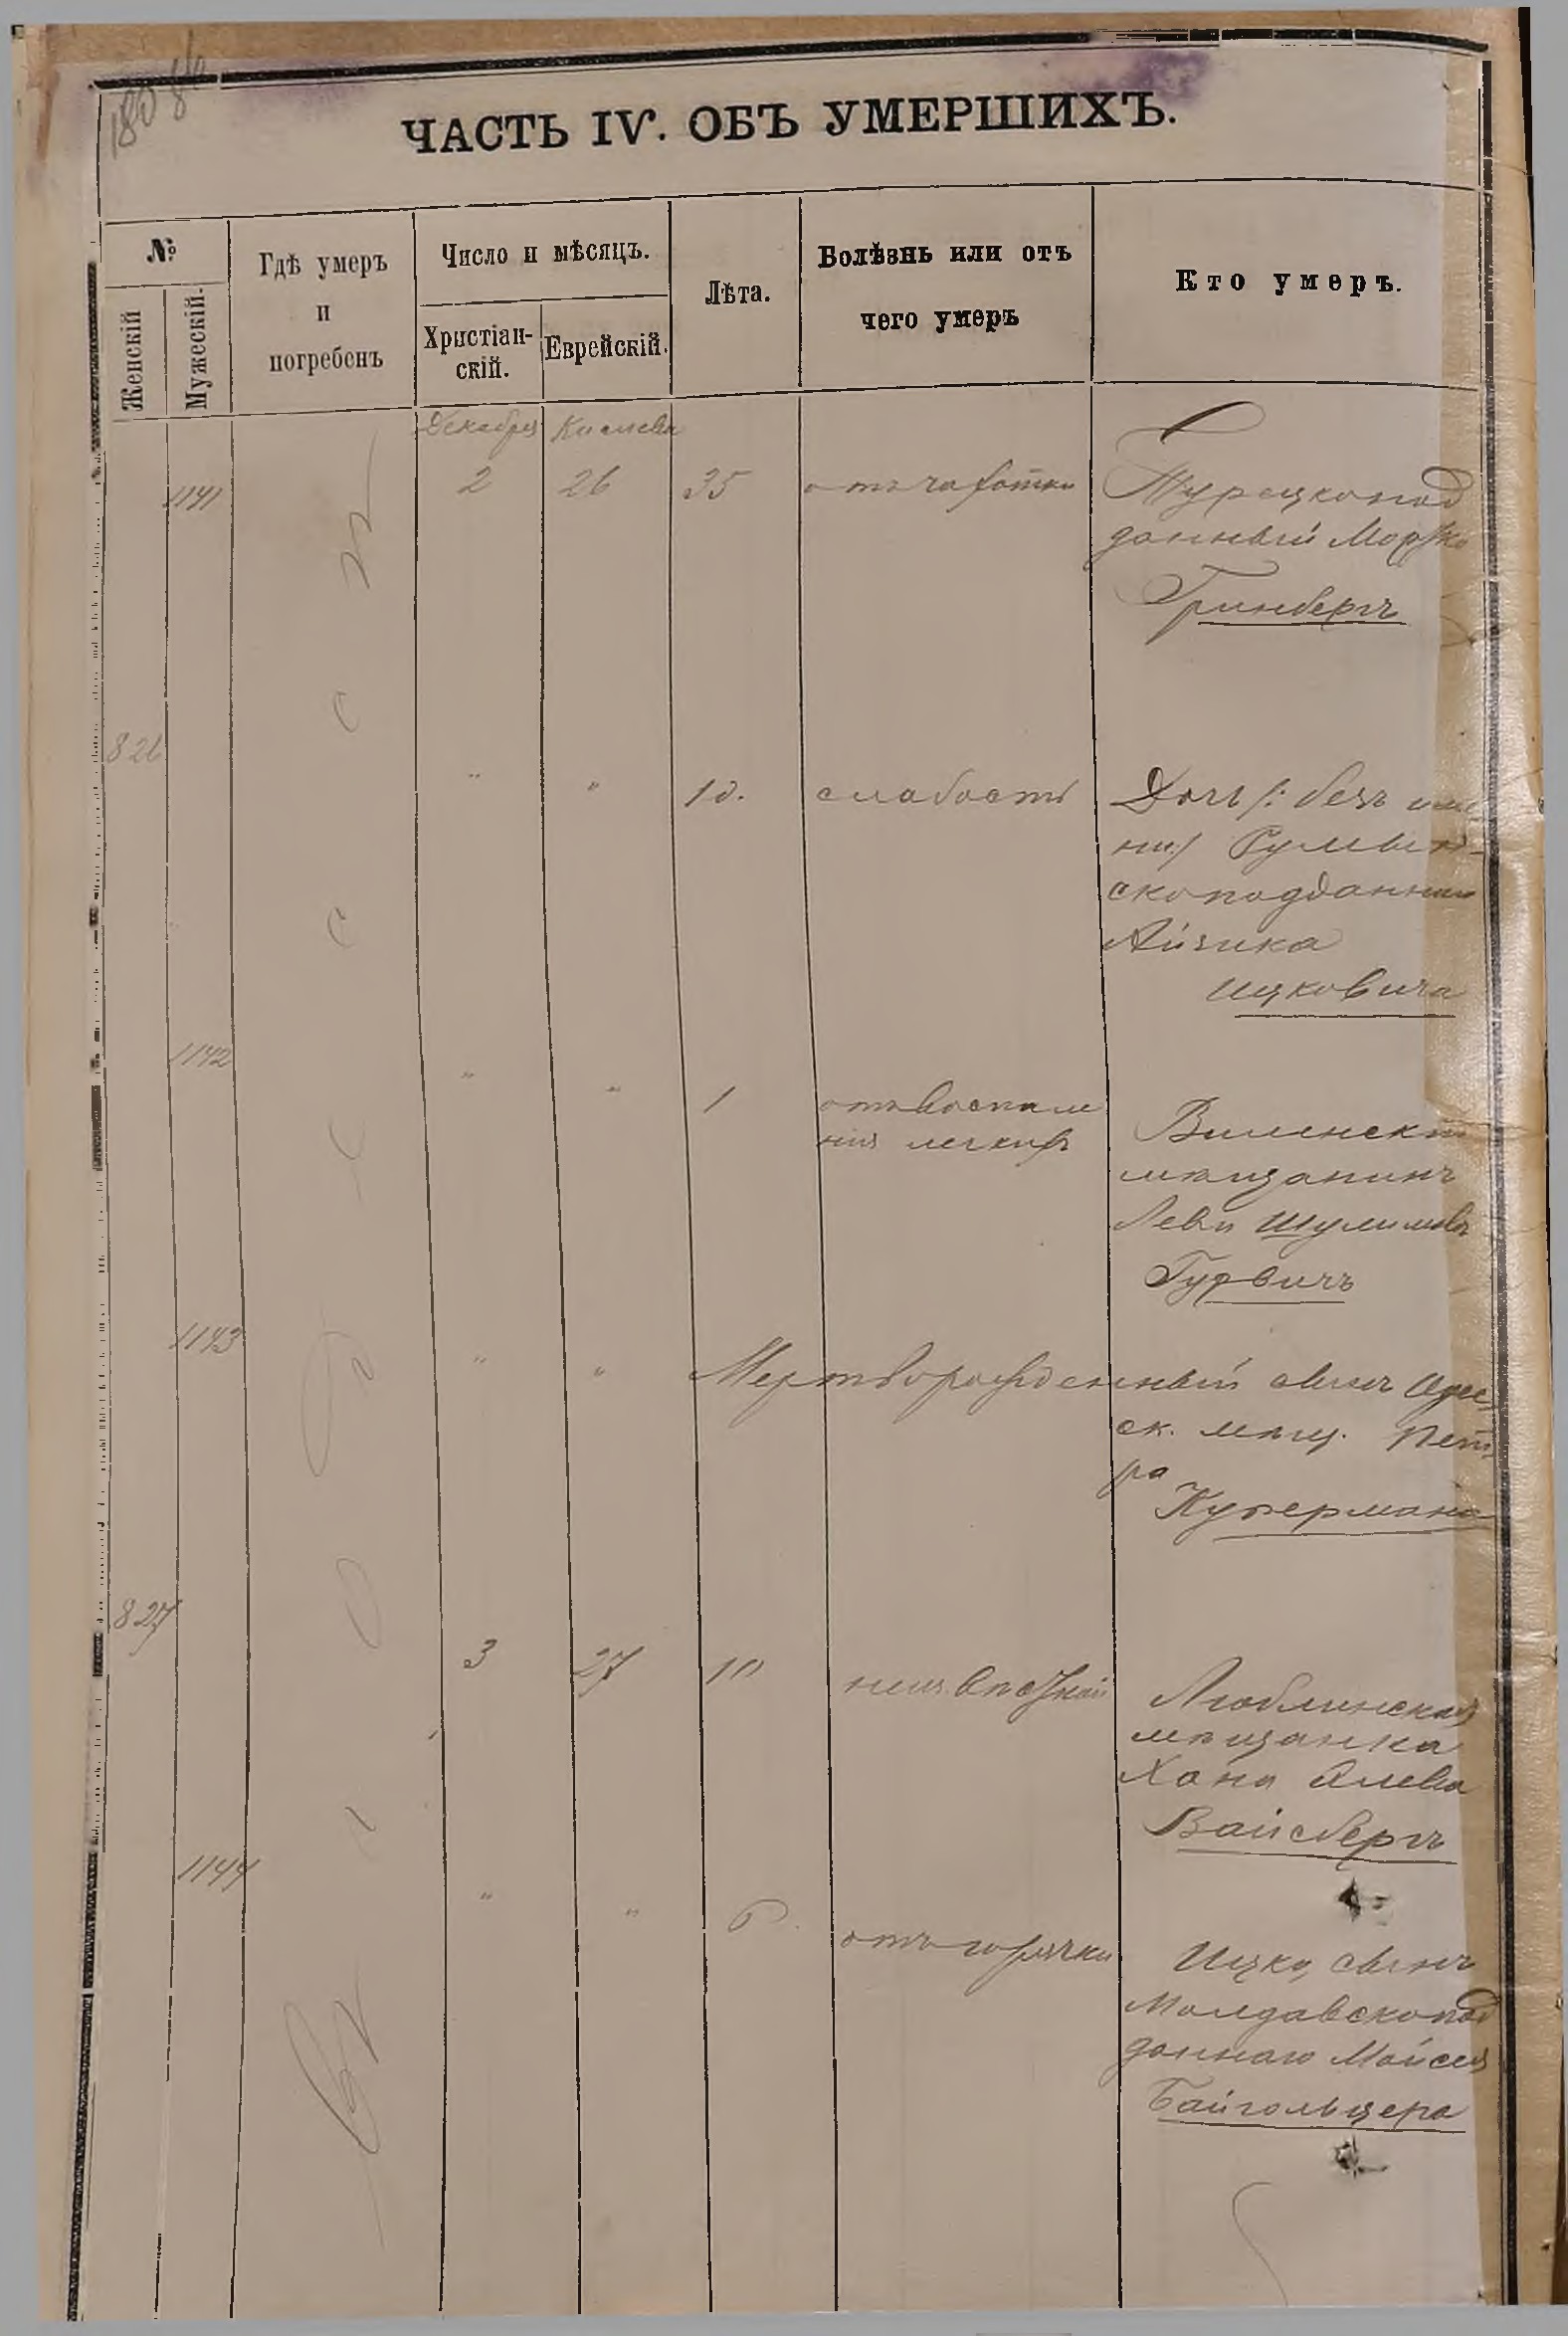 ЧАСТЬ IV. ОБЪ УМЕРШИХЪ.
№
Женскій
Мужескій.
Гдѣ умеръ
и
погребенъ
Число и мѣсяцъ.
Христіан-
скій.
Еврейскій.
Лѣта.
Болѣзнь или отъ
чего умеръ
Кто умеръ.
Декабря Кислева
1141 2 26 35 отъ чахотки Турецкопод
данный Мошко
Гринбергъ
826 " " 1 д. слабость Дочь /: безъ име
ни :/ Румын-
скоподданнаго
Айзика
Ицковича
1142 " " 1 отъ воспале
нія легкихъ
Виленскій
мѣщанинъ
Левъ Шулимовъ
Гурвичъ
1143 " " Мертворожденный сынъ Одес
ск. мѣщ. Пет
ра
Купермана
827 3 27 10 неизвѣстной
Люблинская
мѣщанка
Хана
Вайсбергъ
1144 " " 6 отъ горячки
Ицко, сынъ
Молдавскопод
даннаго Мойсея
Байгольцера
Въ Одессѣ